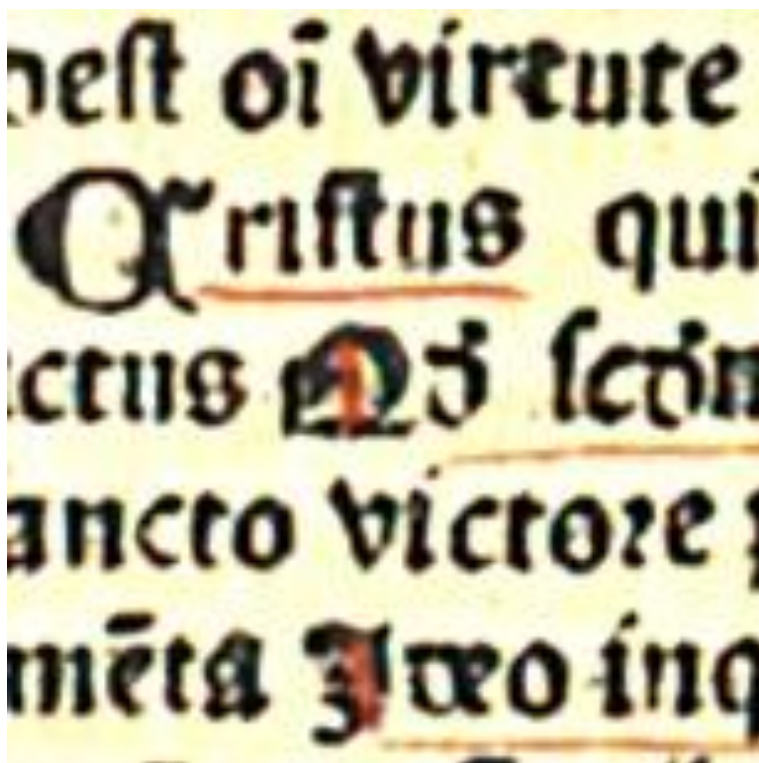 oeſt oī virtute
Criſtus qui
ctus
ancto victore
mēta ideo inq